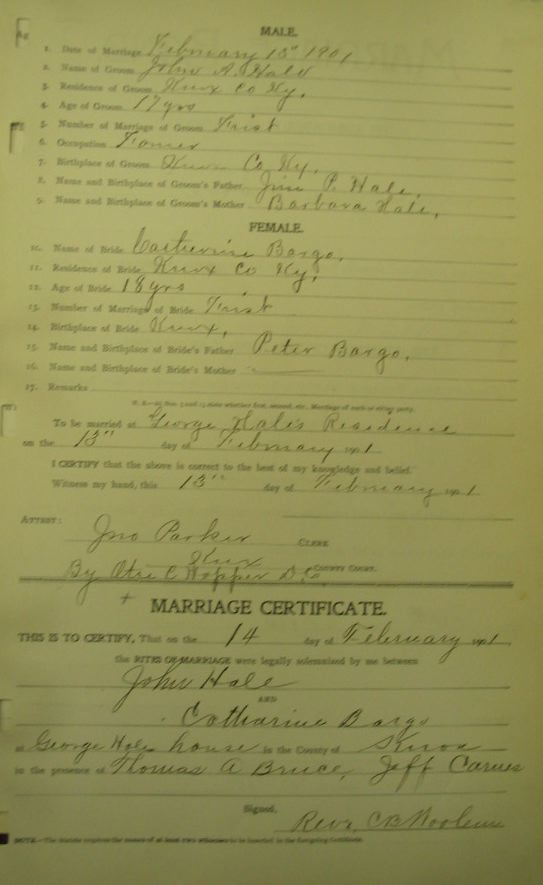 MALE.
1. Date of Marriage February 13" 1901
2. Name of Groom John A. Hale
3. Residence of Groom Knox Co Ky,
4. Age of Groom 17 yrs
5. Number of Marriage of Groom Frist
6. Occupation Farmer
7. Birthplace of Groom Knox Co Ky,
8. Name and Birthplace of Groom's Father Jno P. Hale,
9. Name and Birthplace of Groom's Mother Barbara Hale,
FEMALE.
10. Name of Bride Catherine Bargo,
11. Residence of Bride Knox Co Ky,
12. Age of Bride 18 yrs
13. Number of Marriage of Bride Frist
14. Birthplace of Bride Knox,
15. Name and Birthplace of Bride's Father Peter Bargo,
16. Name and Birthplace of Bride's Mother
17. Remarks
N. B.—At Nos. 5 and 13 state whether first, second, etc., Marriage of each or either party.
To be married at George Hale's Residence
on the 13" day of February 1901
I CERTIFY that the above is correct to the best of my knowledge and belief.
Witness my hand, this 13" day of February 1901
ATTEST:
Jno Parker CLERK
Knox COUNTY COURT.
By C Hopper D.C.
MARRIAGE CERTIFICATE.
THIS IS TO CERTIFY, That on the 14 day of February 1901
the RITES OF MARRIAGE were legally solemnized by me between
John Hale
AND
Catharine Bargo
at George Hale house in the County of Knox
in the presence of Thomas A Bruce, Jeff Carnes
Signed,
Revr. C B
NOTE.—The statute requires the names of at least two witnesses to be inserted in the foregoing Certificate.